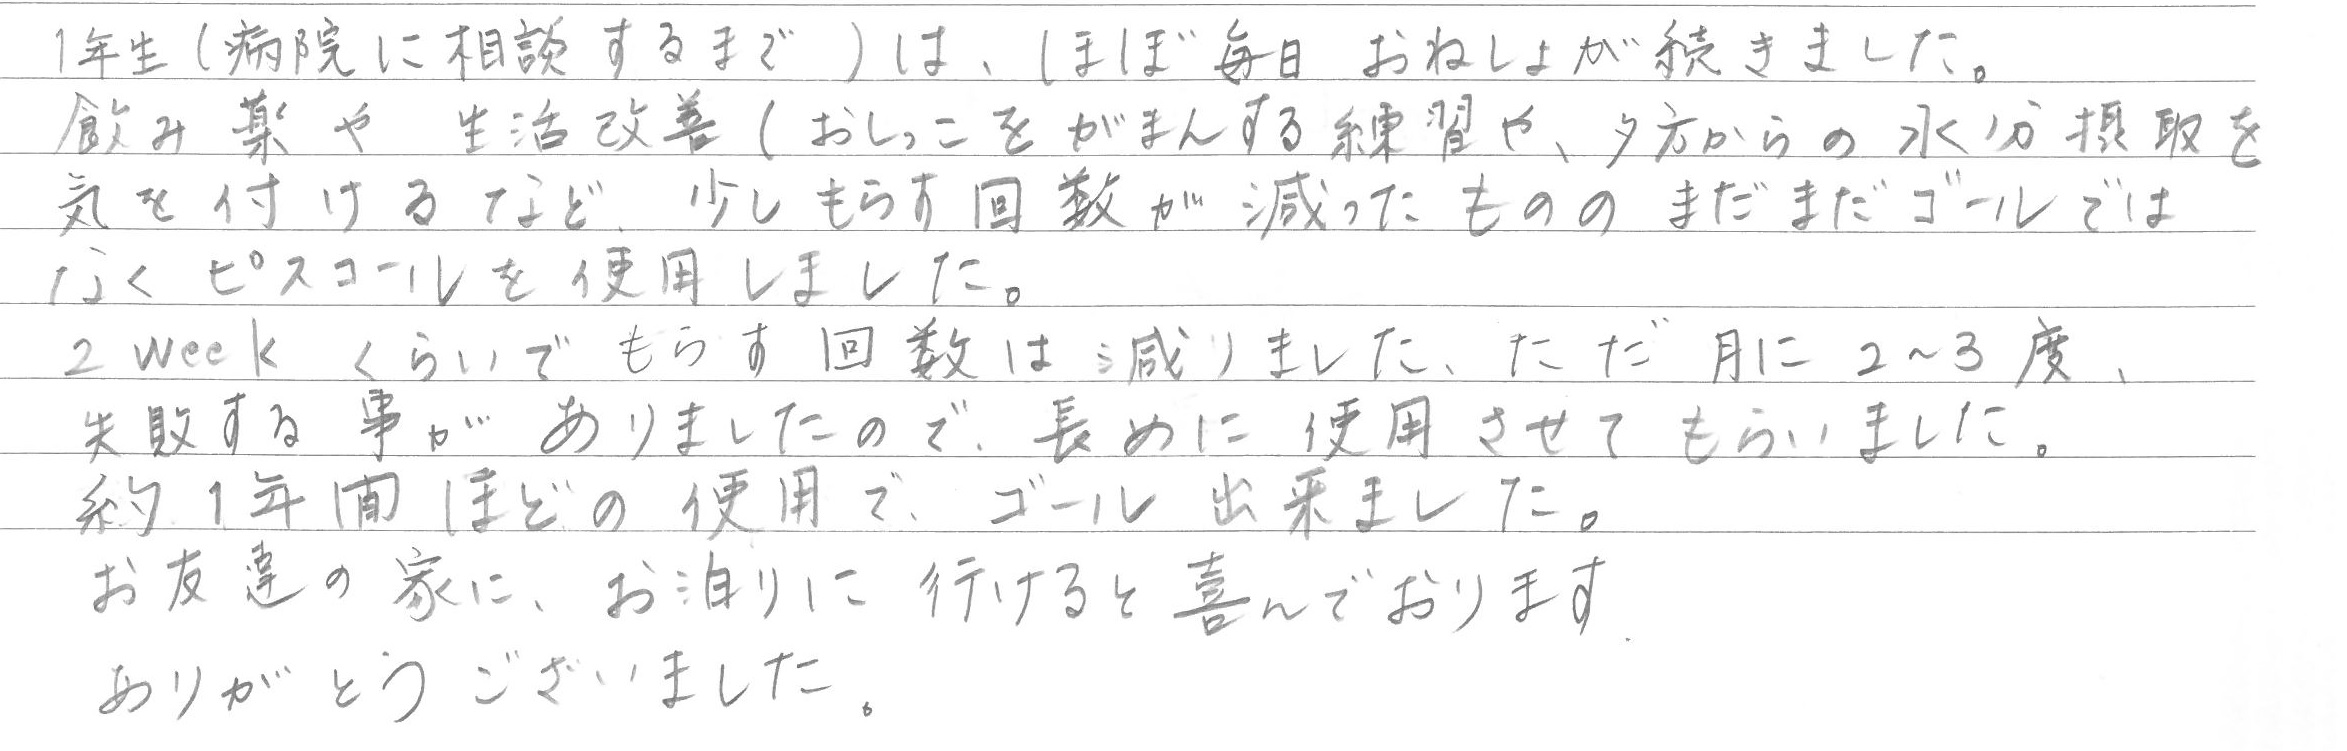 1年生(病院に相談するまで)は、ほぼ毎日 おねしょが続きました。
飲み薬や 生活改善(おしっこをがまんする練習や、夕方からの水分摂取を
気を付けるなど、少しもらす回数が減ったもののまだまだゴールでは
なくピスコールを使用しました。
2weekくらいでもらす回数は減りました、ただ月に2~3度、
失敗する事がありましたので、長めに使用させてもらいました。
約1年間ほどの使用で、ゴール出来ました。
お友達の家に、お泊りに行けると喜んでおります.
ありがとうございました。